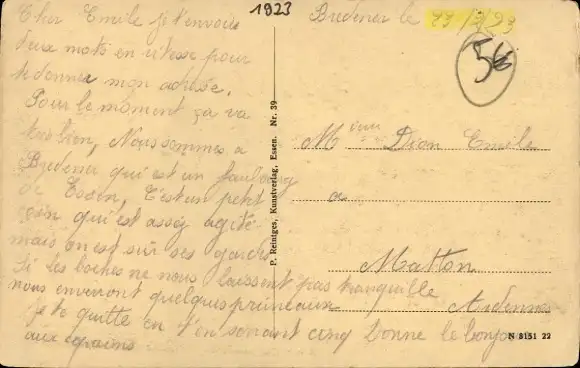 1923
Cher Emile je t'envoie
deux mots en vitesse pour
te donner mon adresse.
Pour le moment ça va
très bien, Nous sommes a
Bredeney qui est un faubourg
de Essen, C'est un petit
coin qui est assez agité
mais on est sur ses gardes
Si les boches ne nous laissent pas tranquille
nous enverront quelques pruneaux
je te quitte en t'en serrant cinq bonne le bonjour
aux copains
Bredeney le 23
56
Mr Dion Emile
a
Matton
Ardennes
P. Reintges, Kunstverlag, Essen. Nr. 39
N 5151 22